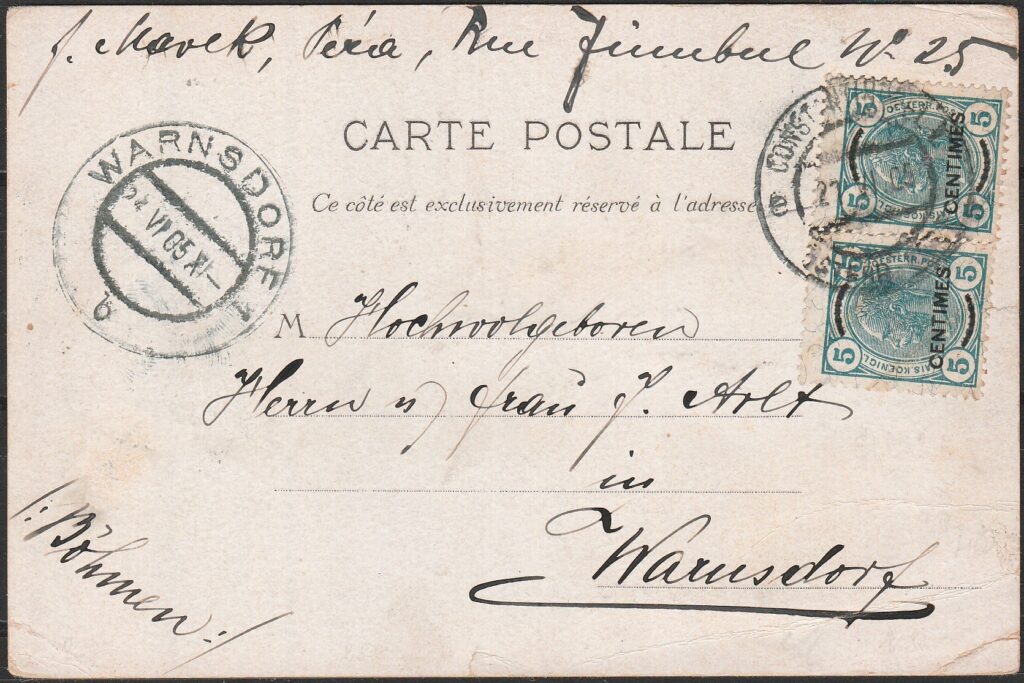 J. Marek, Péra, Rue Jimmbul No 25
CARTE POSTALE
Ce côté est exclusivement réservé à l'adresse
WARNSDORF 1
24 VI 05 XI-
b
CONST
5 OESTERR. POST 5
CENTIMES
5 5
5 OESTERR. POST 5
CENTIMES
5 KAIS. KOENIGL. 5
M Hochwolgeboren
Herrn u frau J. Arlt
in
Warnsdorf
/: Böhmen :/